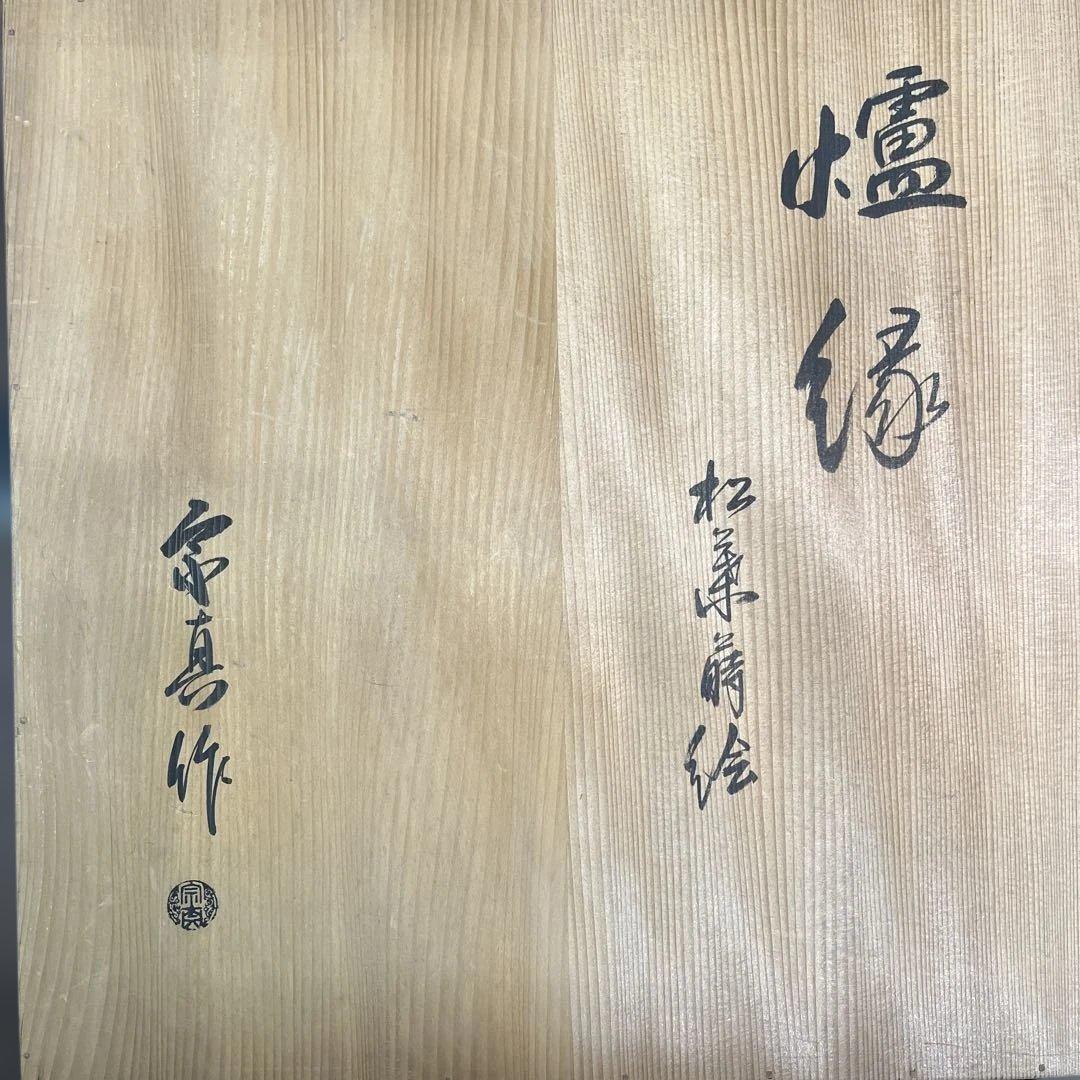 爐縁
松葉蒔絵
宗真作
宗真